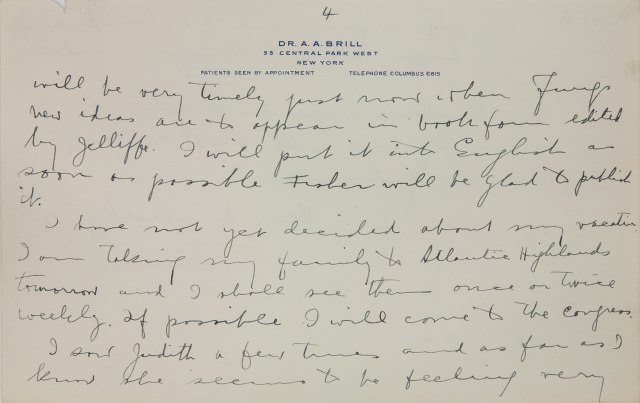 4
DR. A. A. BRILL
55 CENTRAL PARK WEST
NEW YORK
PATIENTS SEEN BY APPOINTMENT TELEPHONE COLUMBUS 6815
will be very timely just now when Jungs
new ideas are to appear in book form edited
by Jelliffe. I will put it into English as
soon as possible Fisher will be glad to publish
it.
I have not yet decided about my vacation.
I am taking my family to Atlantic Highlands
tomorrow and I shall see them once or twice
weekly. If possible I will come to the congress.
I saw Judith a few times and as far as I
know she seems to be feeling very